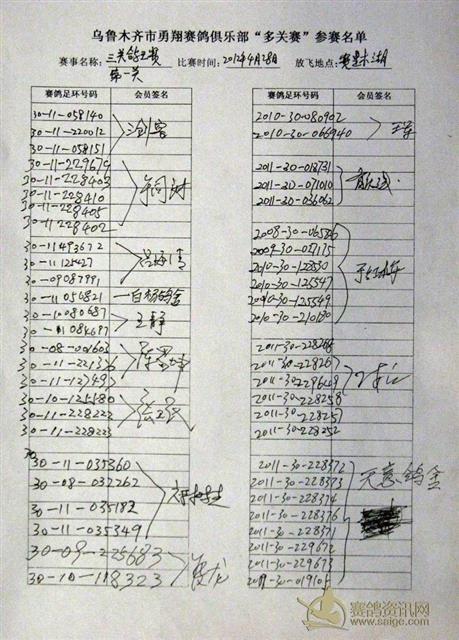 乌鲁木齐市勇翔赛鸽俱乐部“多关赛”参赛名单
赛事名称：三关鸽王赛 比赛时间：2012年4月28日 放飞地点：赛里木湖
第一关
赛鸽足环号码 会员签名
30-11-058140
30-11-220012
30-11-058151
30-11-229679
30-11-228403
30-11-228410
30-11-228405
30-11-228402
30-11493672
30-11125427
30-09087991
30-11056821 白杨鸽舍
30-10080687 王静
30-11084697
30-08-001603
30-11-221336
30-11-12349
30-10-125580
30-11-228222
30-11-228223
30-11-035360
30-08-032262
30-11-035182
30-11-035349
30-09-225683
30-10-118323
赛鸽足环号码 会员签名
2010-30-080902
2010-30-066940
2011-30-018731
2011-30-071010
2011-30-036062
2008-30-06526
2009-30-027175
2010-30-128530
2010-30-125547
2010-30-125549
2010-30-210180
2011-30-228268
2011-30-228267
2011-30-229649
2011-30-228258
2011-30-228257
2011-30-228252
2011-30-228372
2011-30-228373 元意鸽舍
2011-30-228374
2011-30-228376
2011-30-228371
2011-30-229672
2011-30-229673
2011-30-019105
赛鸽资讯网
www.saige.com